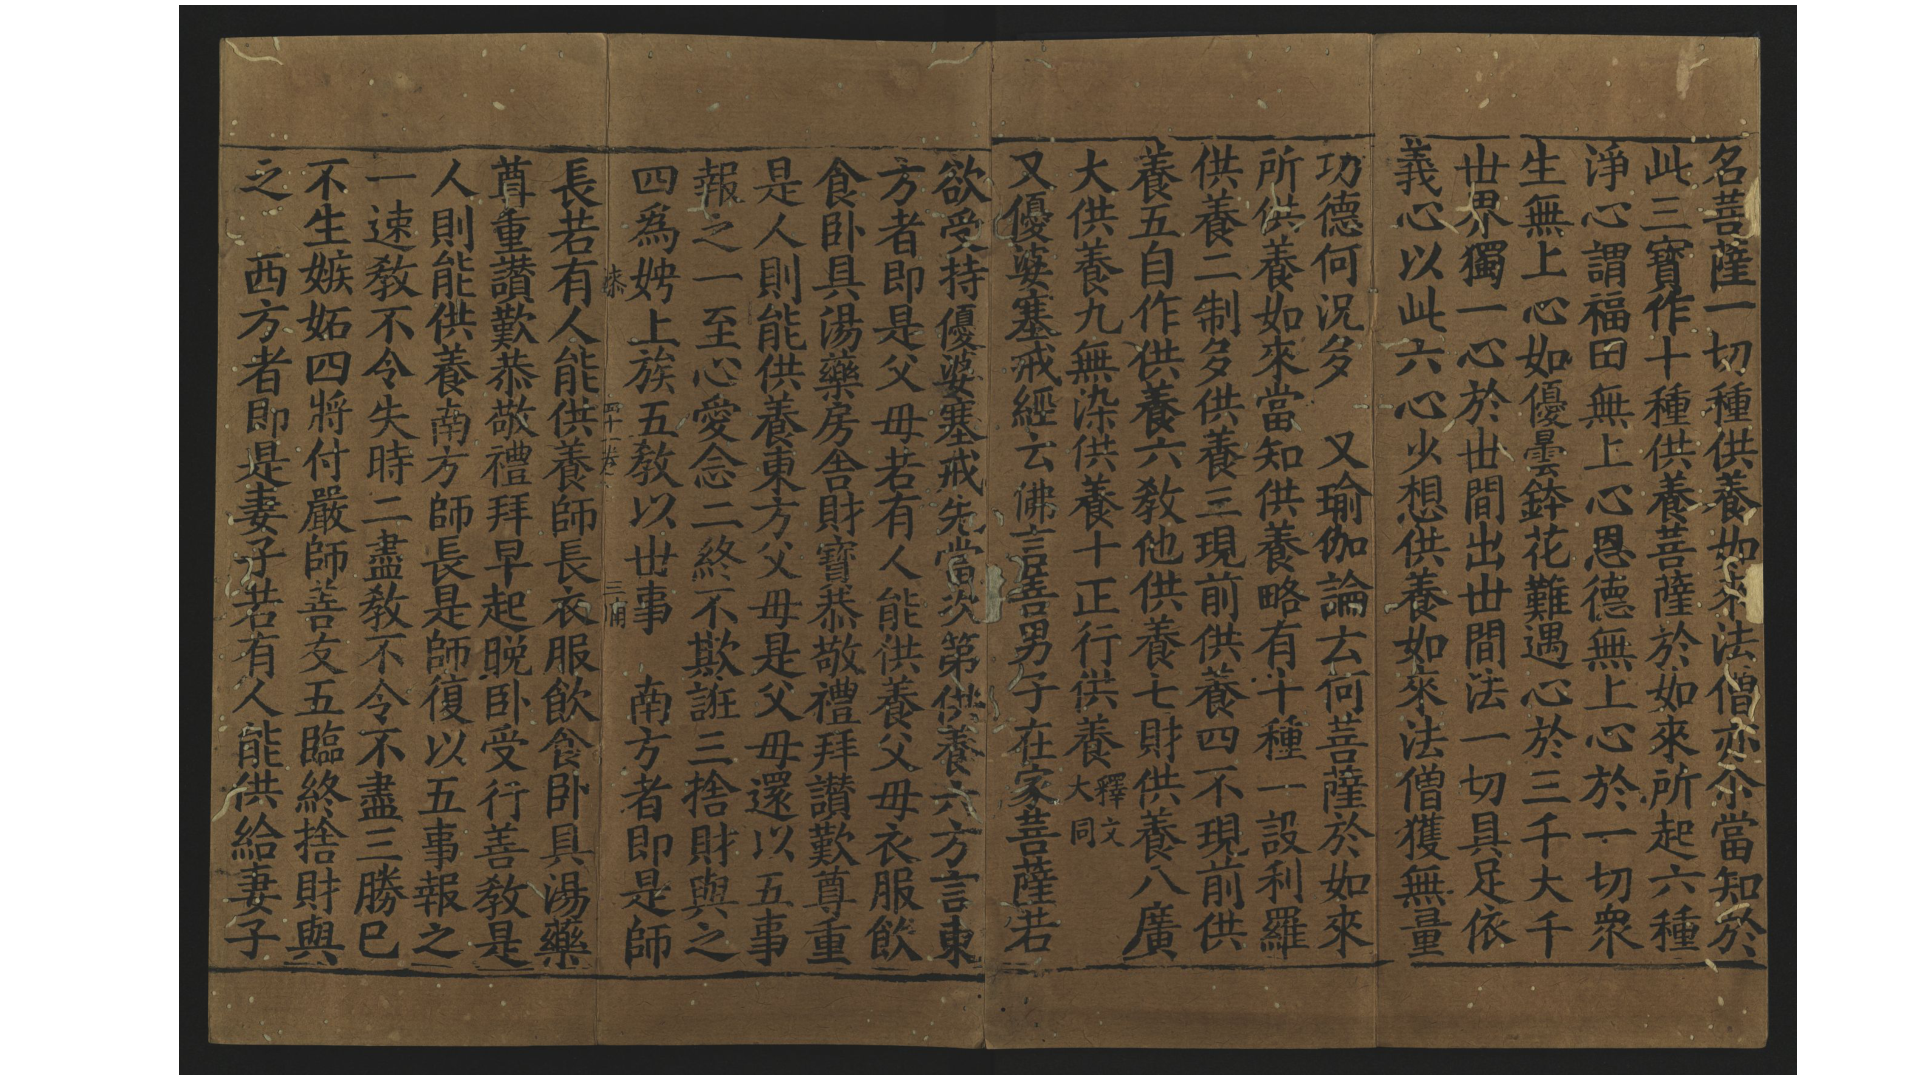 名菩薩一切種供養如來法僧亦尒當知於
此三寶作十種供養菩薩於如來所起六種
淨心謂福田無上心恩德無上心於一切衆
生無上心如優曇鉢花難遇心於三千大千
世界獨一心於世間出世間法一切具足依
義心以此六心少想供養如來法僧獲無量
功德何況多　又瑜伽論云何菩薩於如來
所供養如來當知供養略有十種一設利羅
供養二制多供養三現前供養四不現前供
養五自作供養六教他供養七財供養八廣
大供養九無染供養十正行供養釋文大同
又優婆塞戒經云佛言善男子在家菩薩若
欲受持優婆塞戒先當次第供養六方言東
方者即是父母若有人能供養父母衣服飲
食卧具湯藥房舍財寶恭敬禮拜讃歎尊重
是人則能供養東方父母是父母還以五事
報之一至心愛念二終不欺誑三捨財與之
四爲娉上族五教以世事　南方者即是師
漆　四十一卷　三
長若有人能供養師長衣服飲食卧具湯藥
尊重讃歎恭敬禮拜早起晚卧受行善教是
人則能供養南方師長是師復以五事報之
一速教不令失時二盡教不令不盡三勝己
不生嫉妬四將付嚴師善友五臨終捨財與
之　西方者即是妻子若有人能供給妻子